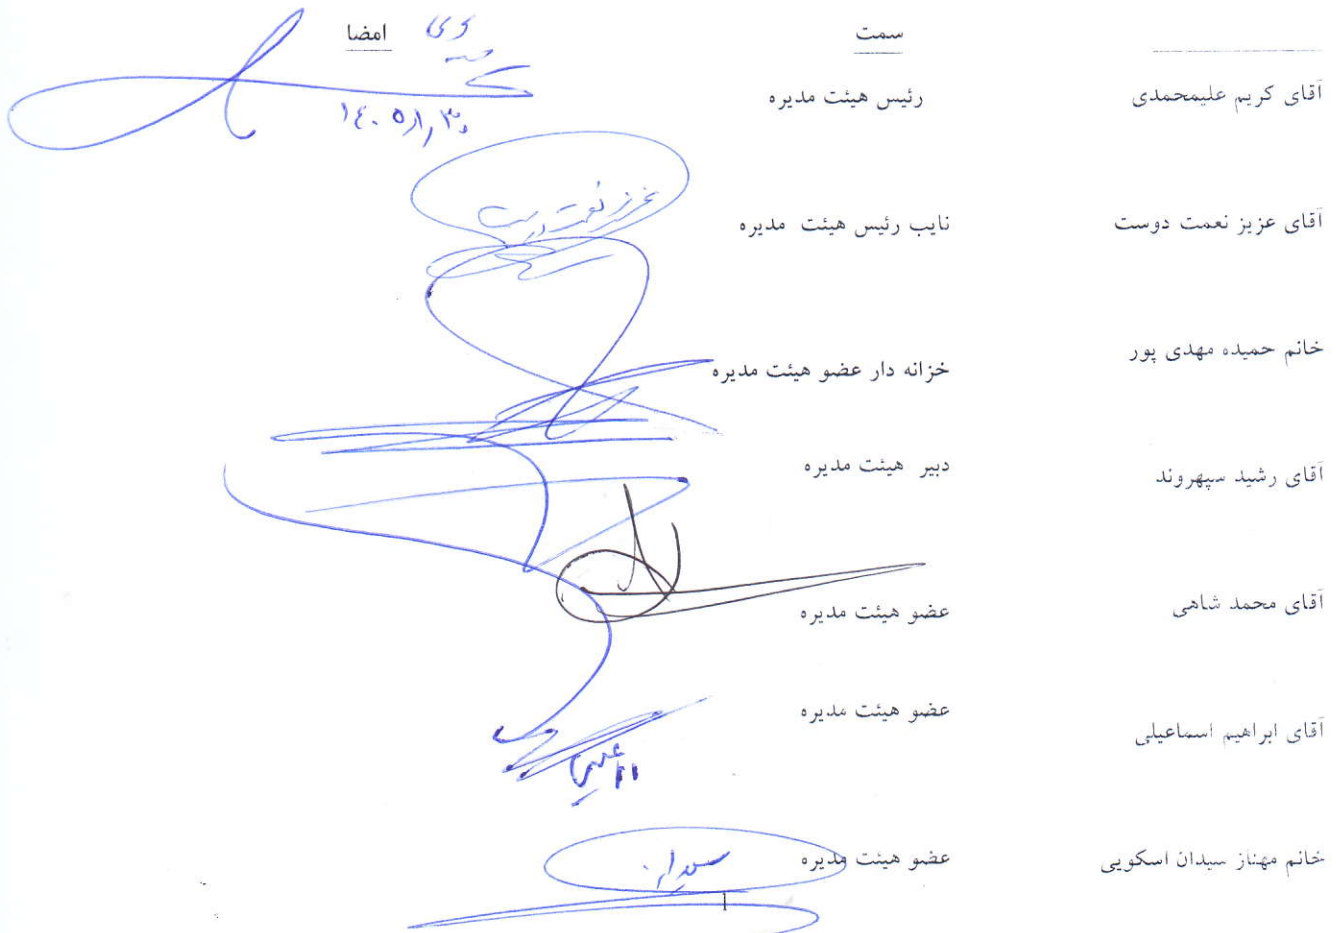 سمت امضا
آقای کریم علیمحمدی رئیس هیئت مدیره
۱۴۰۵/۱/۳۰
آقای عزیز نعمت دوست نایب رئیس هیئت مدیره
عزیز نعمت دوست
خانم حمیده مهدی پور خزانه دار عضو هیئت مدیره
آقای رشید سپهروند دبیر هیئت مدیره
آقای محمد شاهی عضو هیئت مدیره
آقای ابراهیم اسماعیلی عضو هیئت مدیره
خانم مهناز سیدان اسکویی عضو هیئت مدیره